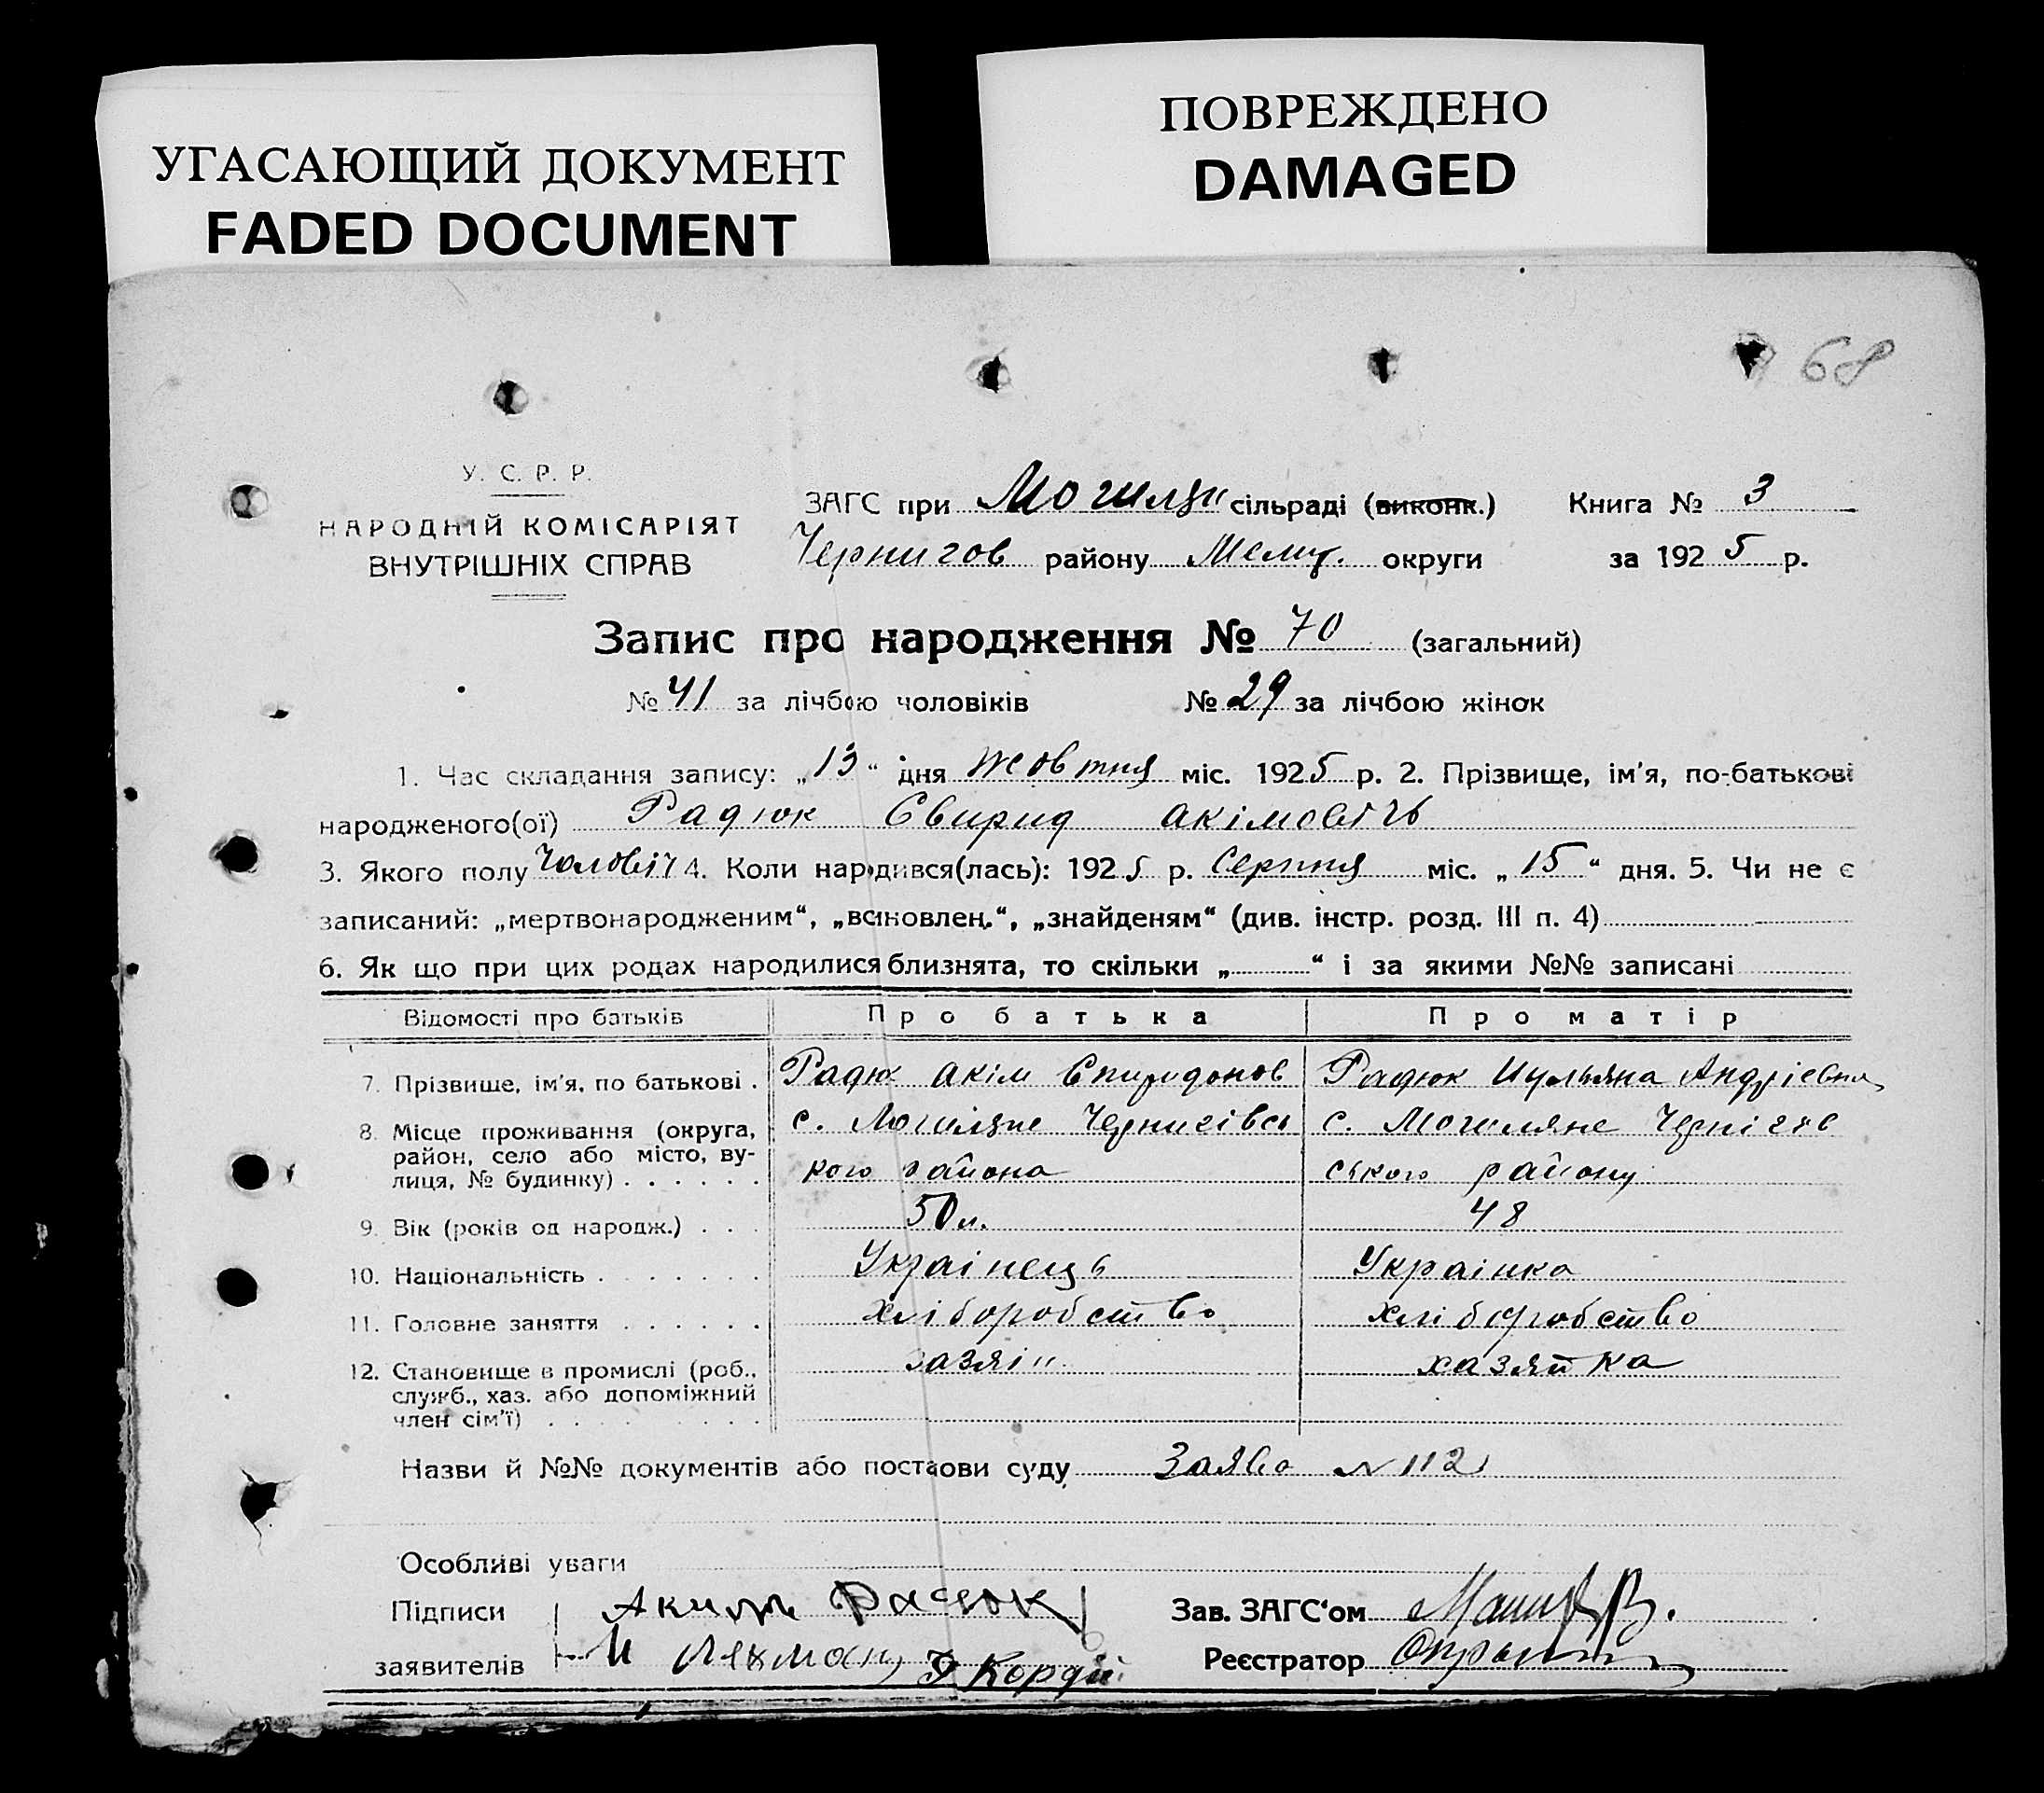 УГАСАЮЩИЙ ДОКУМЕНТ
FADED DOCUMENT
ПОВРЕЖДЕНО
DAMAGED
68
У. С. Р. Р.
НАРОДНІЙ КОМІСАРІЯТ
ВНУТРІШНІХ СПРАВ
ЗАГС при Могиля сільраді (виконк.) Книга № 3
Чернигов району Меліт. округи за 1925 р.
Запис про народження № 70 (загальний)
№ 41 за лічбою чоловіків № 29 за лічбою жінок
1. Час складання запису: „13“ дня жовтня міс. 1925 р. 2. Прізвище, ім'я, по-батькові
народженого(ої) Радюк Свирид акімовічь
3. Якого полу чоловіч 4. Коли народився(лась): 1925 р. Серпня міс. „15“ дня. 5. Чи не є
записаний: „мертвонародженим“, „всиновлен.“, „знайденям“ (див. інстр. розд. III п. 4)
6. Як що при цих родах народилися близнята, то скільки „ “ і за якими №№ записані
Відомості про батьків Про батька Про матір
7. Прізвище, ім'я, по батькові . Радюк акім Спиридонов Радюк Иульяна Андріевна
8. Місце проживання (округа, район, село або місто, ву-лиця, № будинку) . . . . . . с. Могиляне Чернигівсь кого района с. Могиляне Чернігів ського району
9. Вік (років од народж.) . . . 50 л. 48
10. Національність . . . . . . . Украінець Украінка
11. Головне заняття . . . . . . хліборобство хліборобство
12. Становище в промислі (роб., служб., хаз. або допоміжний член сім'ї) . . . . . . . . . хазяін хазяйка
Назви й №№ документів або постанови суду Заява № 112
Особливі уваги
Підписи Аким Радюк Зав. ЗАГС‘ом
заявителів И Лахман Кордій Реєстратор